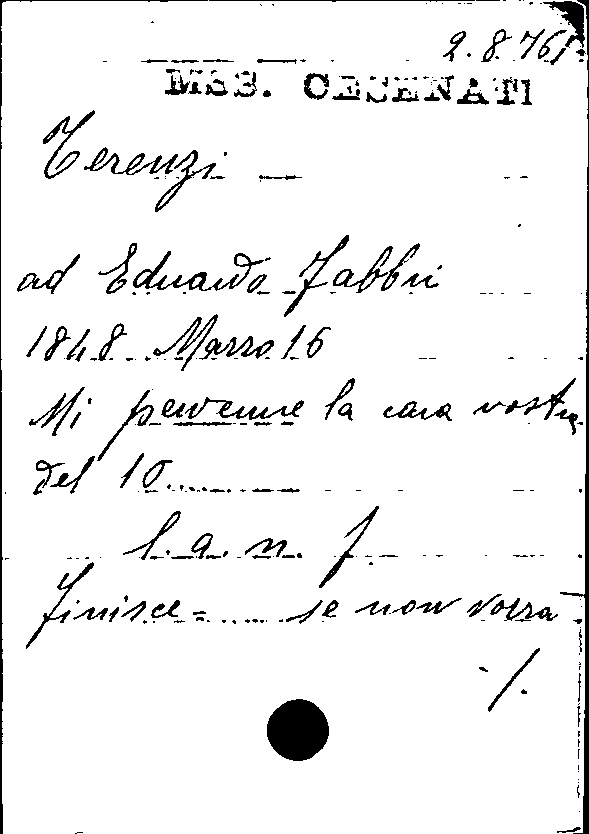 2.8.761
MSS. CESENATI
Terenzi
ad Eduardo Fabbri
1848 Marzo 16
Mi pervenne la cara vostra
del 10........
l. a. n. f.
finisce = ..... se non vorrà
./.